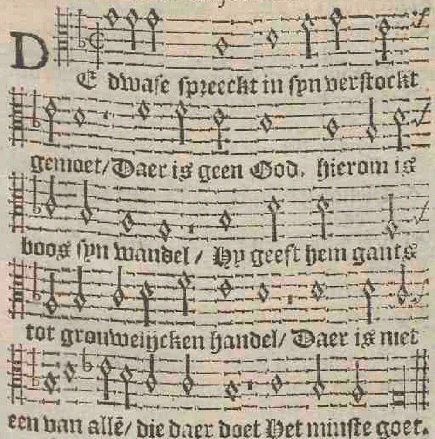 DE dwase spreeckt in syn verstockt
gemoet/Daer is geen God, hierom is
boos syn wandel / Hy geeft hem gants
tot grouweijcken handel/ Daer is niet
een van allē/ die daer doet Het minste goet.